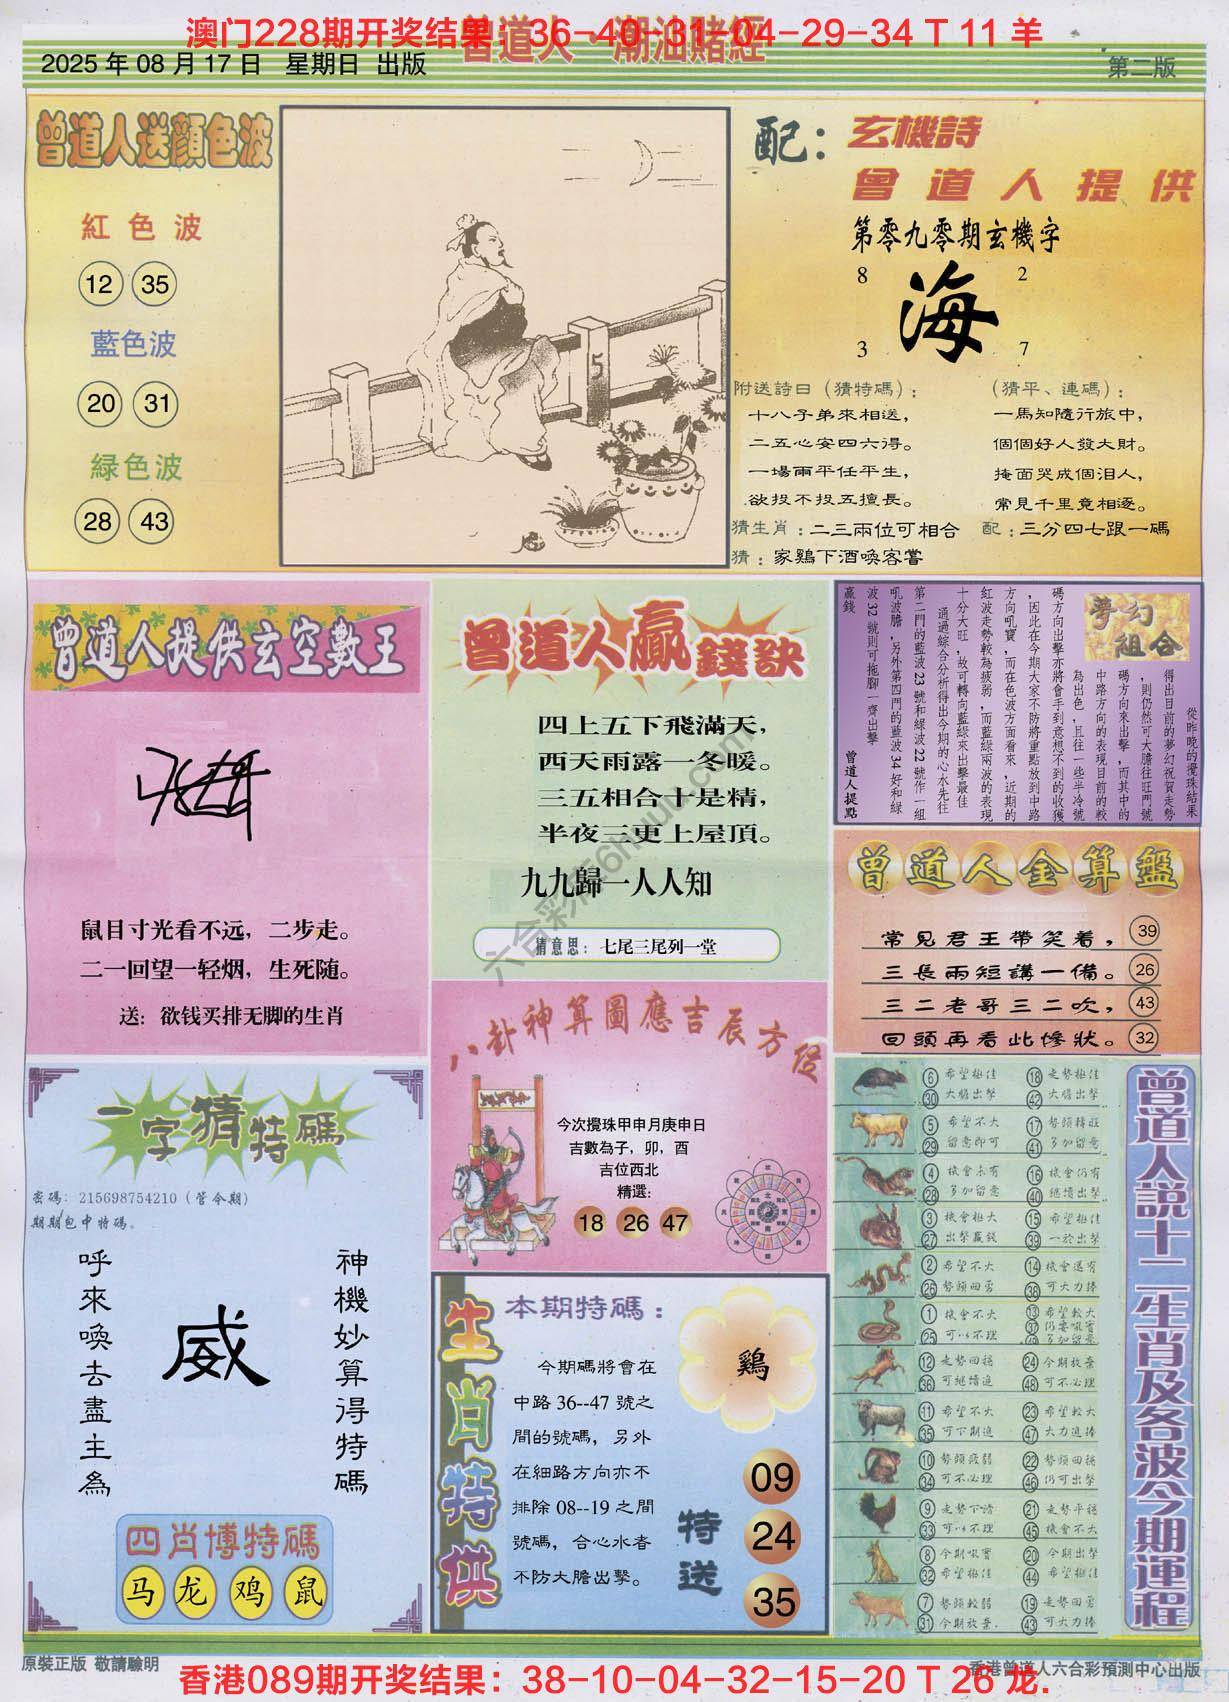 澳门228期开奖结果：36-40-31-04-29-34 T 11 羊
曾道人·潮油賭經
2025 年 08 月 17 日 星期日 出版
第二版
曾道人送顏色波
紅色波
12 35
藍色波
20 31
緑色波
28 43
5
配：玄機詩
曾道人提供
第零九零期玄機字
8 2
海
3 7
附送詩曰（猜特碼）：
十八子弟來相送，
二五心安四六得。
一場兩平任平生，
欲投不投五擅長。
（猜平、連碼）：
一馬知隨行旅中，
個個好人發大財。
掩面哭成個泪人，
常見千里竟相逐。
猜生肖：二三兩位可相合
配：三分四七跟一碼
猜：家鷄下酒喚客嘗
曾道人提供玄空數王
鼠目寸光看不远，二步走。
二一回望一轻烟，生死随。
送：欲钱买排无脚的生肖
曾道人贏錢訣
四上五下飛滿天，
西天雨露一冬暖。
三五相合十是精，
半夜三更上屋頂。
九九歸一人人知
猜意思：七尾三尾列一堂
夢幻組合
從昨晚的攪珠結果
得出目前的夢幻祝賀走勢
，則仍然可大膽往旺門號
碼方向來出擊，而其中的
中路方向的表現目前的較
為出色，且往一些半冷號
碼方向出擊亦將會手到意想不到的收獲
，因此在今期大家不防將重點放到中路
方向吼寶，而在色波方面看來，近期的
紅波走勢較為疲弱，而藍綠兩波的表現
十分大旺，故可轉向藍綠來出擊最佳
通過綜合分析得出今期的心水先往
第二門的藍波 23 號和綠波 22 號作一組
吼波膽，另外第四門的藍波 34 好和綠
波 32 號則可拖腳一齊出擊
贏錢
曾道人提點
曾道人金算盤
常見君王帶笑着， 39
三長兩短講一備。 26
三二老哥三二吹， 43
回頭再看此慘狀。 32
八卦神算圖應吉辰方位
今次攪珠甲申月庚申日
吉數為子，卯，酉
吉位西北
精選：
18 26 47
一字猜特碼
密碼：215698754210（管令期）
期期包中特碼。
呼來喚去盡主為
威
神機妙算得特碼
四肖博特碼
马 龙 鸡 鼠
生肖特供
本期特碼：
鷄
今期碼將會在
中路 36--47 號之
間的號碼，另外
在細路方向亦不
排除 08--19 之間
號碼，合心水者
不防大膽出擊。
特送
09
24
35
曾道人説十二生肖及各波今期運程
6 希望極佳 18 走勢極佳
30 大膽出擊 42 大膽出擊
5 希望不大 17 勢頭轉旺
29 留意即可 41 多加留意
4 機會未有 16 機會仍有
28 多加留意 40 繼續出擊
3 機會極大 15 希望極佳
27 出擊贏錢 39 一於出擊
2 希望不大 14 機會還有
26 勢頭回勇 38 可大力捧
1 機會不大 13 希望較大
25 可以不理 37 仍要吼實
49 多加留意
12 走勢回穩 24 今期放棄
36 可繼續追 48 可不必理
11 希望不大 23 希望較大
35 可下期追 47 大力追捧
10 勢頭疲弱 22 勢頭回穩
34 可不必理 46 仍可出擊
9 走勢下滑 21 走勢平穩
33 可以不理 45 機會不大
8 今期吼實 20 今期出擊
32 希望極佳 44 希望極佳
7 勢頭較弱 19 走勢回勇
31 今期放棄. 43 可大力捧
六合彩 56huu6.com
原裝正版 敬請驗明
香港曾道人六合彩預測中心出版
香港089期开奖结果：38-10-04-32-15-20 T 26 龙.